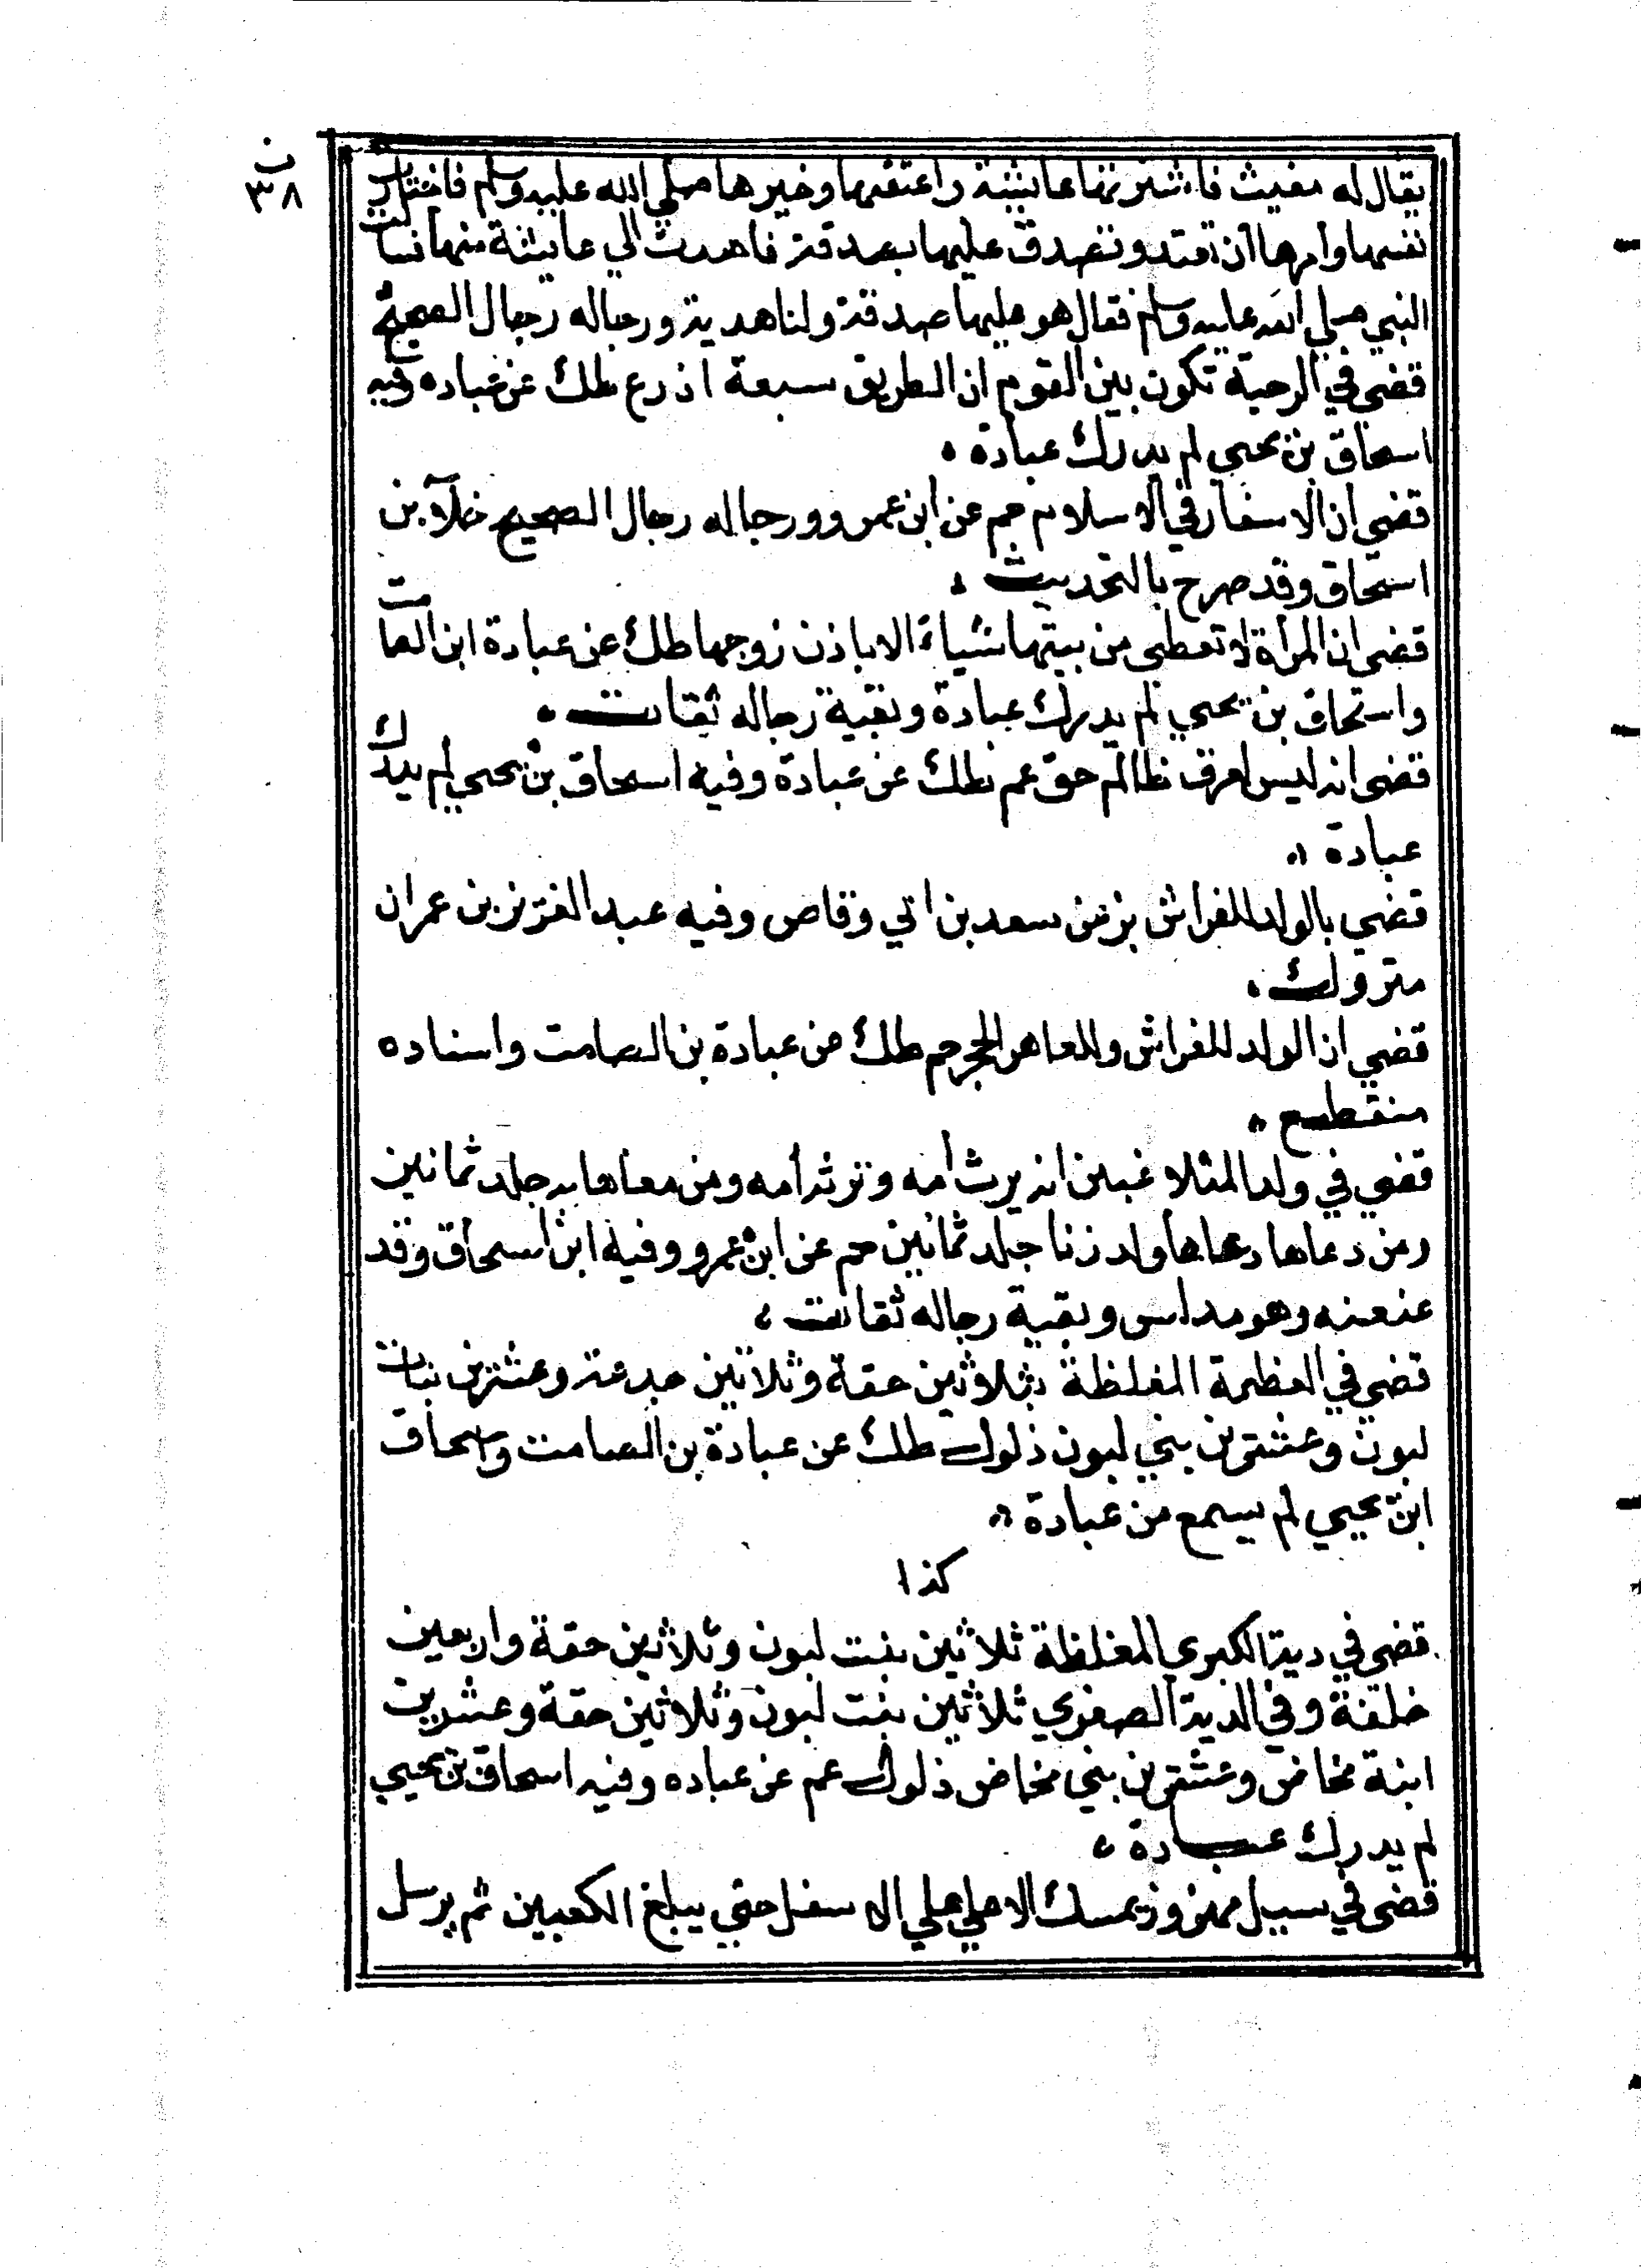 ن
٣٨
يقال له مغيث فاشترتها عايشة واعتقتها وخيرها صلي الله عليه وسلم فاختارت
نفسها وامرها ان تعتد وتصدق عليها بصدقة فاهدت الي عايشة منها فسألت
النبي صلي الله عليه وسلم فقال هو عليها صدقة ولنا هدية ورجاله رجال الصحيح
قضي في الرحبة تكون بين القوم ان الطريق سبعة اذرع طك عن عباده وفيه
اسحاق بن يحيي لم يدرك عبادة ،
قضي ان لا سفار في الاسلام حم عن ابن عمرو ورجاله رجال الصحيح خلا بن
اسحاق وقد صرح بالتحديث ،
قضي ان المرأة لا تعطي من بيتها شياء الا باذن زوجها طك عن عبادة ابن الصامت
واسحاق بن يحيي لم يدرك عبادة وبقية رجاله ثقات ،
قضي انه ليس لعرق ظالم حق عم طك عن عبادة وفيه اسحاق بن يحيي لم يدرك
عبادة ،،
قضي بالولد للفراش بز عن سعد بن ابي وقاص وفيه عبد العزيز بن عمران
متروك ،
قضي ان الولد للفراش وللعاهر الحجر حم طك عن عبادة بن الصامت واسناده
منقطع ،،
قضي في ولد المتلاعنين انه يرث أمه وترثه أمه ومن معناها به جلد ثمانين
ومن دعاها ولد زنا جلد ثمانين حم عن ابن عمرو وفيه ابن اسحاق وقد
عنعنه وهو مدلس وبقية رجاله ثقات ،
قضي في العظيمة المغلظة بثلاثين حقة وثلاثين جدعة وعشرين بنات
لبون وعشرين بني لبون ذلوك طك عن عبادة بن الصامت واسحاق
ابن يحيي لم يسمع من عبادة ،،
كذا
قضي في دية الكبري المغلظة ثلاثين بنت لبون وثلاثين حقة واربعين
خلقة وفي الدية الصغري ثلاثين بنت لبون وثلاثين حقة وعشرين
ابنة مخاض وعشرين بني مخاض ذلوك عم عن عباده وفيه اسحاق بن يحيي
لم يدرك عبادة ،
قضي في سيل مهزوز يمسك الاعلي علي الاسفل حتي يبلغ الكعبين ثم يرسل